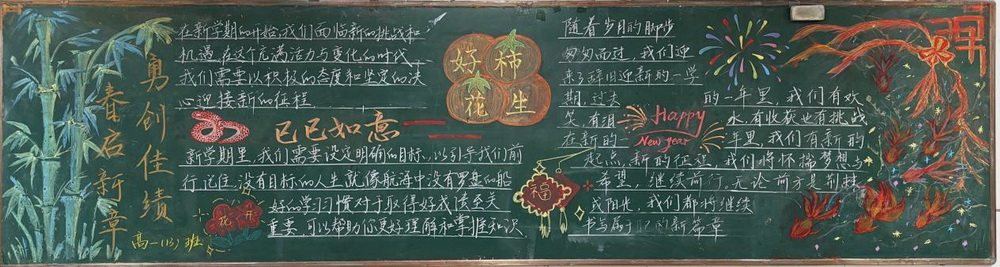 勇创佳绩
春启新章
高一(13)班
在新学期的开始,我们面临新的挑战和
机遇,在这个充满活力与变化的时代,
我们需要以积极的态度和坚定的决
心迎接新的征程
好柿
花生
巳巳如意
新学期里,我们需要设定明确的目标,以引导我们前
行记住,没有目标的人生就像航海中没有罗盘的船
好的学习习惯对于取得好成绩至关
重要,可以帮助你更好理解和掌握知识
花开
福
随着岁月的脚步
匆匆而过,我们迎
来了辞旧迎新的一学
期,过去的一年里,我们有欢
笑,有泪水,有收获也有挑战
在新的一年里,我们有新的
起点,新的征途,我们将怀揣梦想与
希望,继续前行,无论前方是荆棘
或阳光,我们都将继续
书写属于的新篇章
Happy
New year